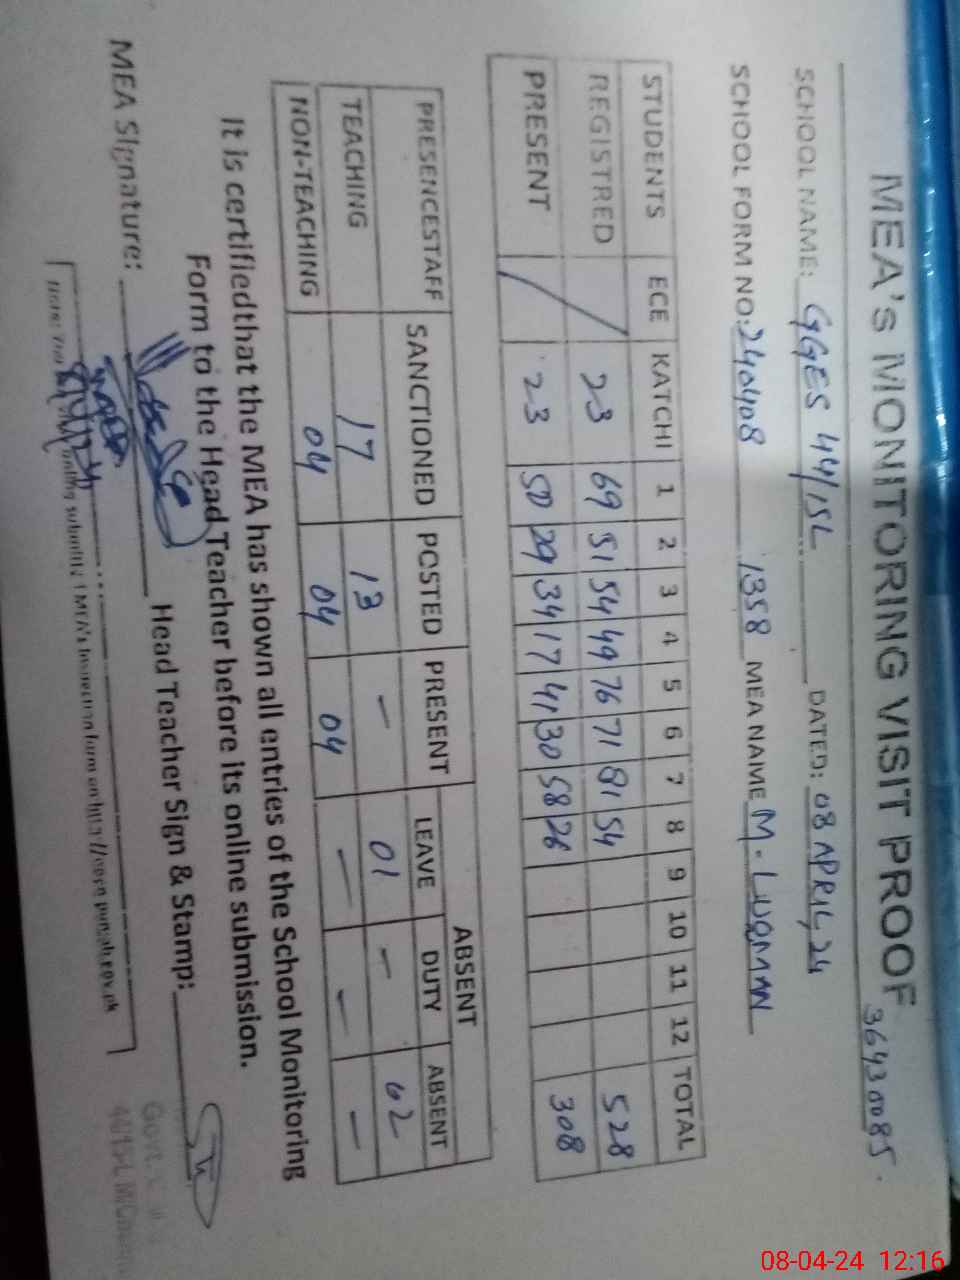 MEA's MONITORING VISIT PROOF 36430085
SCHOOL NAME: GGES 44/15L DATED: 08 APRIL, 24
SCHOOL FORM NO: 240408 1358 MEA NAME M. LUQMAN
STUDENTS ECE KATCHI 1 2 3 4 5 6 7 8 9 10 11 12 TOTAL
REGISTRED 23 69 51 54 49 76 71 81 54 528
PRESENT 23 50 29 34 17 41 30 58 26 308
ABSENT
PRESENCESTAFF SANCTIONED POSTED PRESENT LEAVE DUTY ABSENT
TEACHING 17 13 - 01 - 02
NON-TEACHING 04 04 04 - - -
It is certifiedthat the MEA has shown all entries of the School Monitoring
Form to the Head Teacher before its online submission.
MEA Signature: Head Teacher Sign & Stamp:
submitted MEA's Inspection form on
Govt.
44/15-L M/Chan
08-04-24 12:16